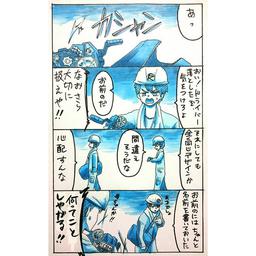 あっ
カシャン
おい!ドライバー
落としたぞ
気をつけろよ
お前のだ
なおさら
大切に
扱えや!!
それにしても
全部同じデザインか
間違え
そうだな
心配すんな
お前のにはちゃんと
名前を書いておいた
何てこと
しやがる!!